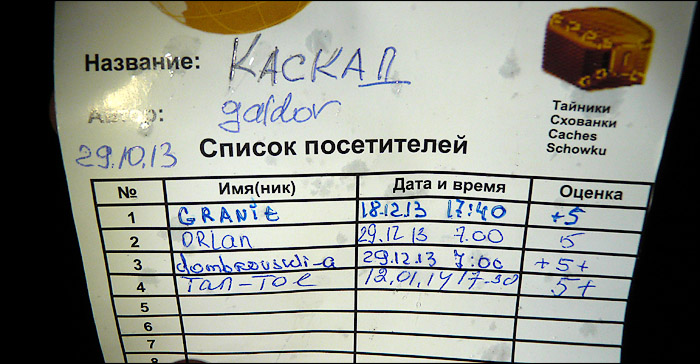 Название: КАСКАД
Автор: galdor
29.10.13 Список посетителей
Тайники
Схованки
Caches
Schowku
№ Имя(ник) Дата и время Оценка
1 GRANit 18.12.13 17:40 +5
2 ORLan 29.12 13 7.00 5
3 dombrovskii-a 29.12.13 7:00 +5+
4 Тал-Тос 12.01.14 17.30 5+
5
6
7
8